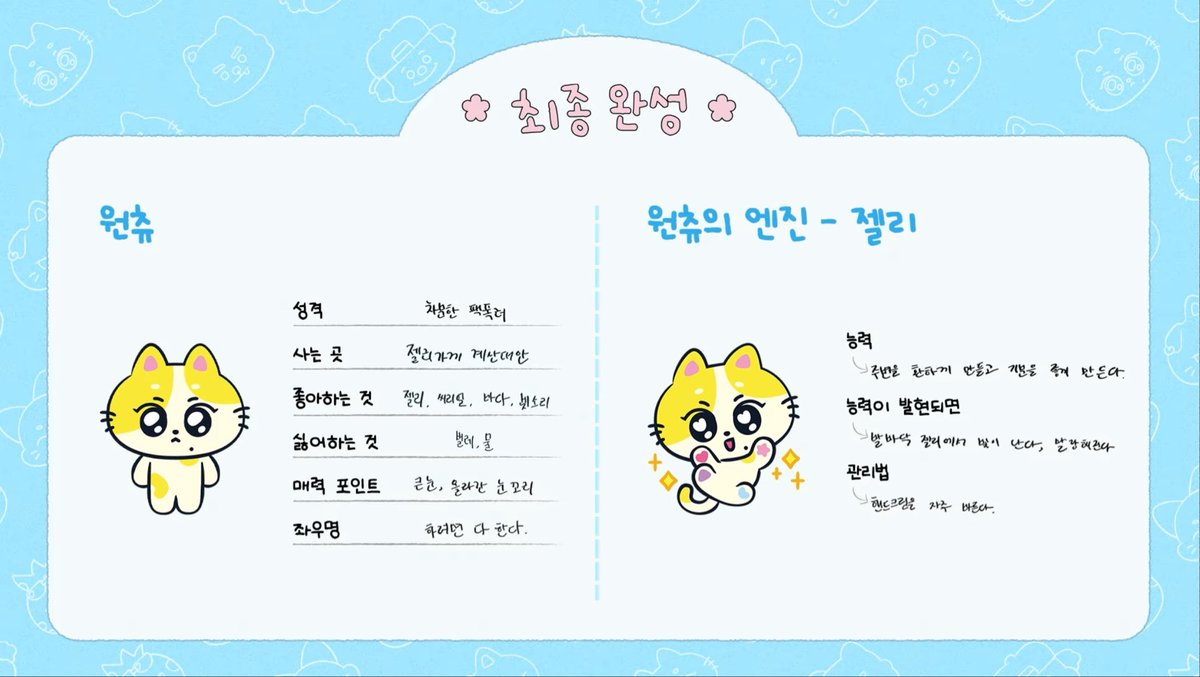 최종 완성
원츄
성격 차분한 팩폭러
사는 곳 젤리가게 계산대안
좋아하는 것 젤리, 씨리얼, 바다, 빗소리
싫어하는 것 벌레, 물
매력 포인트 큰눈, 올라간 눈꼬리
좌우명 하려면 다 한다.
원츄의 엔진 - 젤리
능력
주변을 환하게 만들고 기분을 좋게 만든다.
능력이 발현되면
발바닥 젤리에서 빛이 난다, 말랑해진다
관리법
핸드크림을 자주 바른다.